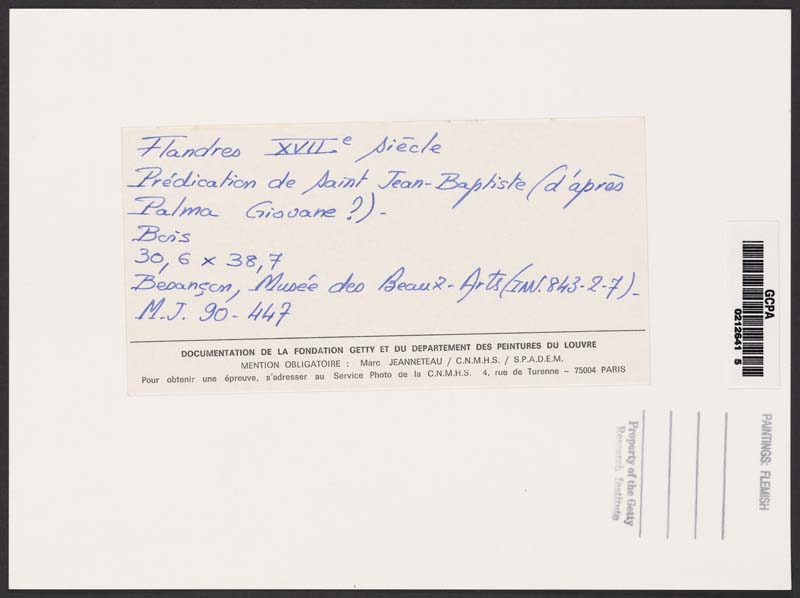 Flandres XVIIe siècle
Prédication de Saint Jean-Baptiste (d'après
Palma Giovane ?) -
Bois
30,6 x 38,7
Besançon, Musée des Beaux-Arts (INV. 843-2-7) -
M.J. 90 - 447
DOCUMENTATION DE LA FONDATION GETTY ET DU DEPARTEMENT DES PEINTURES DU LOUVRE
MENTION OBLIGATOIRE : Marc JEANNETEAU / C.N.M.H.S. / S.P.A.D.E.M.
Pour obtenir une épreuve, s'adresser au Service Photo de la C.N.M.H.S. 4, rue de Turenne -- 75004 PARIS
GCPA
0212641 5
PAINTINGS: FLEMISH
Property of the Getty
Research Institute